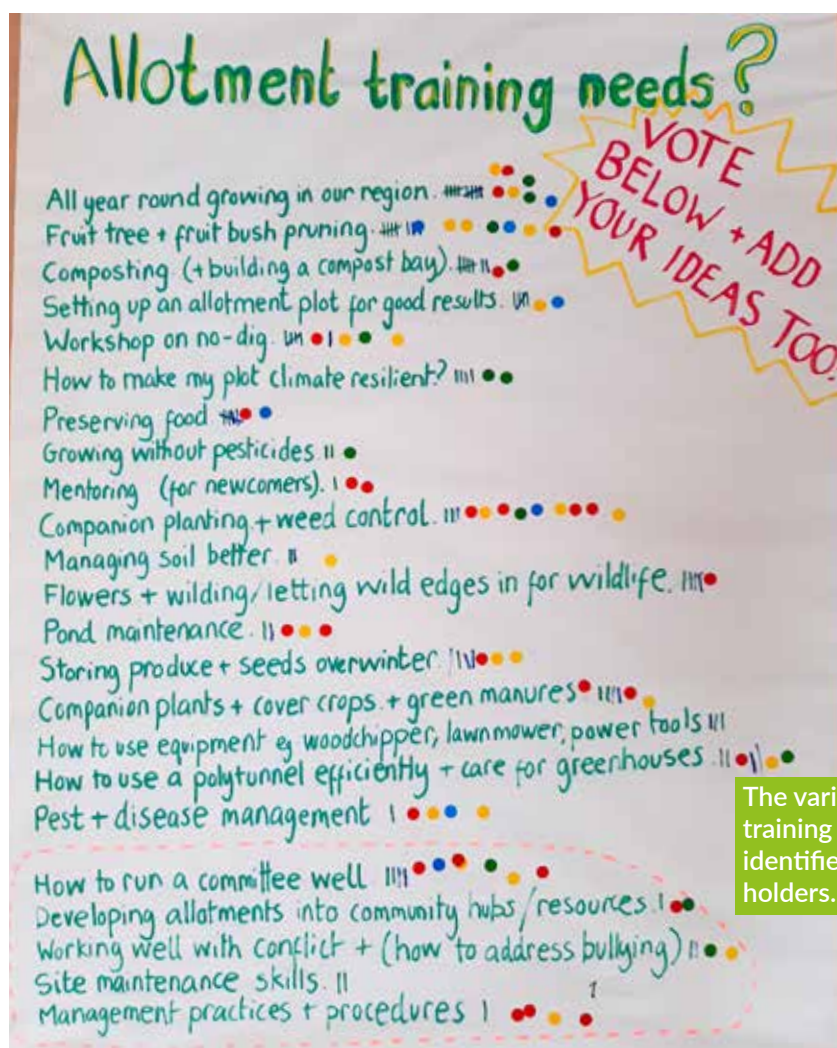 Allotment training needs?
VOTE
BELOW + ADD
YOUR IDEAS TOO.
All year round growing in our region.
Fruit tree + fruit bush pruning.
Composting (+ building a compost bay).
Setting up an allotment plot for good results.
Workshop on no-dig.
How to make my plot climate resilient?
Preserving food
Growing without pesticides.
Mentoring (for newcomers).
Companion planting + weed control.
Managing soil better.
Flowers + wilding/letting wild edges in for wildlife.
Pond maintenance.
Storing produce + seeds overwinter
Companion plants + cover crops + green manures
How to use equipment eg woodchipper, lawnmower, power tools
How to use a polytunnel efficiently + care for greenhouses.
Pest + disease management
The vari
training
identifie
holders.
How to run a committee well
Developing allotments into community hubs/resources.
Working well with conflict + (how to address bullying)
Site maintenance skills.
Management practices + procedures